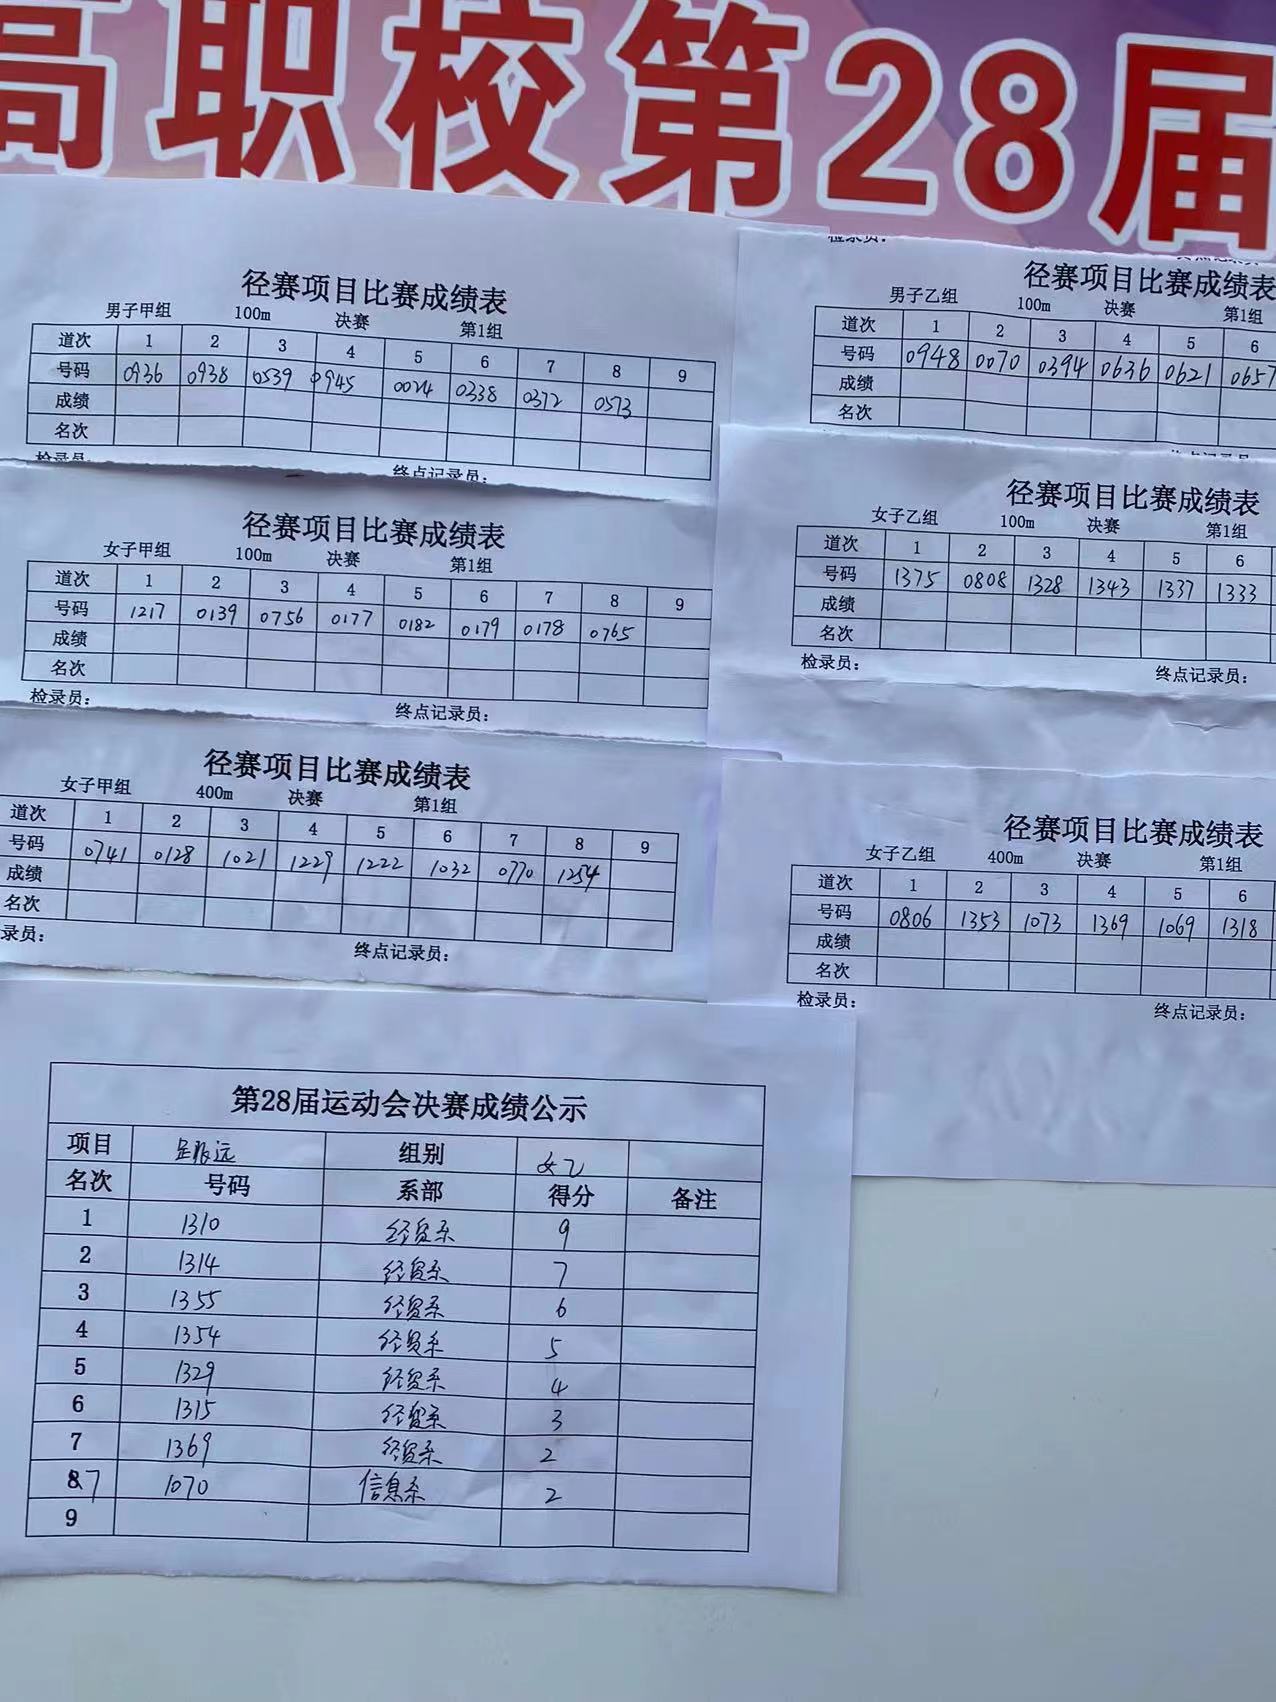 高职校第28届
径赛项目比赛成绩表
男子甲组 100m 决赛 第1组
道次 1 2 3 4 5 6 7 8 9
号码 0936 0938 0539 0945 0024 0338 0372 0573
成绩
名次
检录员： 终点记录员：
径赛项目比赛成绩表
女子甲组 100m 决赛 第1组
道次 1 2 3 4 5 6 7 8 9
号码 1217 0139 0756 0177 0182 0179 0178 0765
成绩
名次
检录员： 终点记录员：
径赛项目比赛成绩表
女子甲组 400m 决赛 第1组
道次 1 2 3 4 5 6 7 8 9
号码 0741 0128 1021 1229 1222 1032 0770 1254
成绩
名次
录员： 终点记录员：
检录员：
径赛项目比赛成绩表
男子乙组 100m 决赛 第1组
道次 1 2 3 4 5 6
号码 0948 0070 0394 0636 0621 0657
成绩
名次
终点记录员
径赛项目比赛成绩表
女子乙组 100m 决赛 第1组
道次 1 2 3 4 5 6
号码 1375 0808 1328 1343 1337 1333
成绩
名次
检录员： 终点记录员：
径赛项目比赛成绩表
女子乙组 400m 决赛 第1组
道次 1 2 3 4 5 6
号码 0806 1353 1073 1369 1069 1318
成绩
名次
检录员： 终点记录员：
第28届运动会决赛成绩公示
项目 立定跳远 组别 女乙
名次 号码 系部 得分 备注
1 1310 经贸系 9
2 1314 经贸系 7
3 1355 经贸系 6
4 1354 经贸系 5
5 1329 经贸系 4
6 1315 经贸系 3
7 1369 经贸系 2
8 7 1070 信息系 2
9